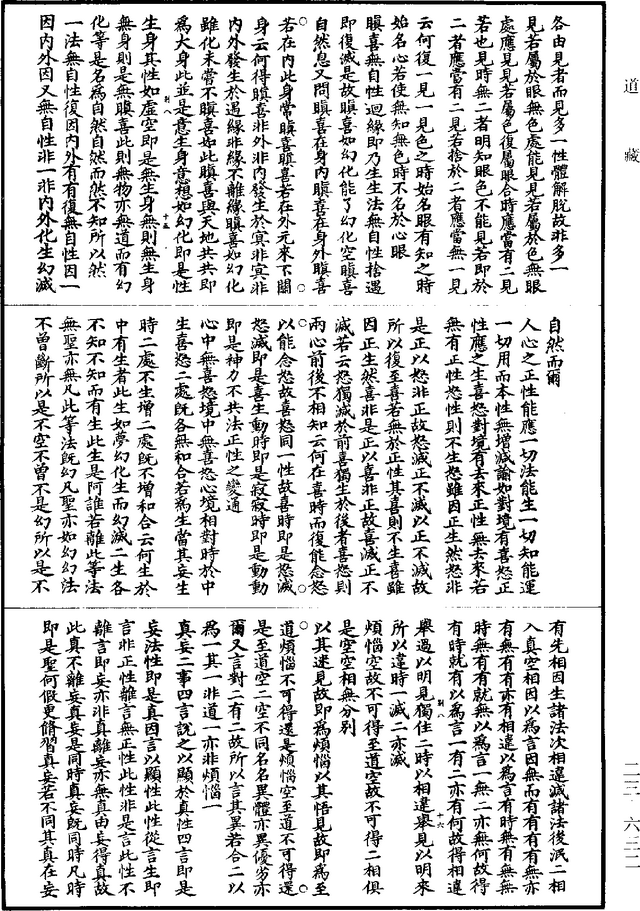 各由見者而見多一性體解脫故非多一
見若屬於眼無色處能見見若屬於色無眼
處應見見若屬色復屬眼合時應當有二見
若也見時無二者明知眼色不能見若即於
二者應當有二見若捨於二者應當無一見
云何復一見一見色之時始名眼有知之時
始名心若使無知無色時不名於心眼
瞋喜無自性迴緣即乃生生法無自性捨遇
即復滅是故瞋喜如幻化能了幻化空瞋喜
自然息又問瞋喜在身內瞋喜在身外瞋喜
若在內此身常瞋喜瞋喜若在外元來不關
身云何得瞋喜非外非內發生於冥非冥非
內外發生於遇緣非緣不離緣瞋喜如幻化
雖化未嘗不瞋喜如此瞋喜與天地共共即
為大身此並是意生身意想如幻化即是性
生身其性如虛空即是無生身無則無生身
無身則是無瞋喜此則無物亦無道而有幻
化等是名為自然自然而然不知所以然
一法無自性復因內外有有復無自性因一
因內外因又無自性非一非內外化生幻滅
自然而爾
人心之正性能應一切法能生一切知能運
一切用而本性無增減諭如對境有喜怒正
性應之生喜怒對境有去來正性無去來若
無有正性怒性則不生怒雖因正生然怒非
是正以怒非正故怒滅正不滅以正不滅故
所以復至喜若無於正性其喜則不生喜雖
因正生然喜非是正以喜非正故喜滅正不
滅若云怒獨滅於前喜獨生於後者喜怒則
兩心前後不相知云何在喜時而復能念怒
以能念怒故喜怒同一性故喜時即是怒滅
怒滅即是喜生動時即是寂寂時即是動動
即是神力不共法正性之變通
心中無喜怒境中無喜怒心境相對時於中
生喜怒二處既各無和合若為生當其妄生
時二處不生增二處既不增和合云何生於
中有生者此生如夢幻化生而幻滅二生各
不知不知而有生此生是阿誰若離此等法
無聖亦無凡此等法既幻凡聖亦如幻幻法
不曾斷所以是不空不曾不是幻所以是不
有先相因生諸法次相違滅諸法後泯二相
入真空相因以為言因無而有有有有無亦
有無有有亦有相違以為言有時無有無無
時無有有就無以為言一無二亦無何故得
有時就有以為言一有二亦有何故得相違
舉過以明見獨住二時以相違舉見以明來
所以違時一滅二亦滅
煩惱空故不可得至道空故不可得二相俱
是空空相無分別
以其迷見故即為煩惱以其悟見故即為至
道煩惱不可得還是煩惱空至道不可得還
是至道空二空不同名名異體亦異優劣亦
爾又言對二有二故所以言其異若合二以
為一其一非道一亦非煩惱一
真妄二事四言說之以顯於真性四言即是
妄法性即是真因言以顯性此性從言生即
言非正性離言無正性此性非是言此性不
離言即妄亦非真離妄亦無真由妄得真故
此真不離妄真妄是同時真妄既同時凡時
即是聖何假更脩習真妄若不同其真在妄
別八
十五
別八
十六
道藏
二二·六三二